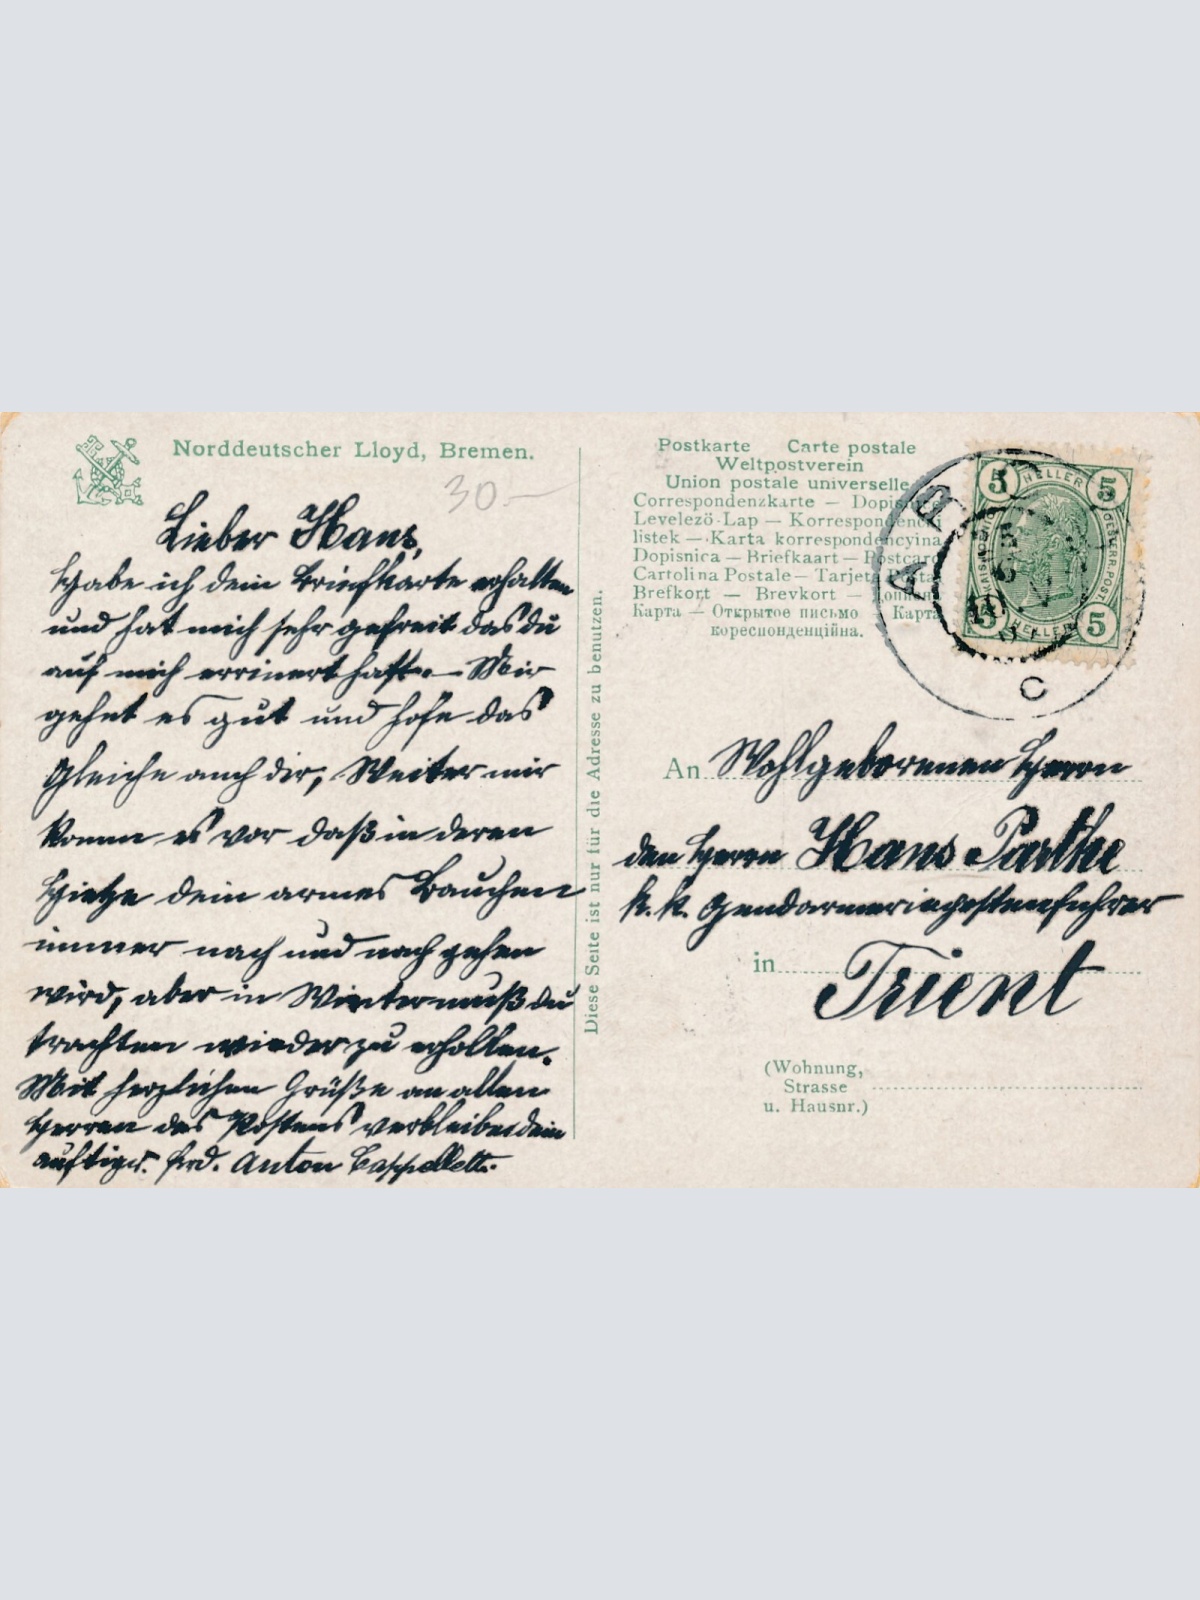 Norddeutscher Lloyd, Bremen.
30.—
Lieber Hans,
Habe ich dein Briefkarte erhalten
und hat mich sehr gefreit das du
auf mich errinert hast. — Mir
gehet es gut und hofe das
Gleiche auch dir, Weiter mir
komm es vor daß in deren
Hietze dein armes Bauchen
immer nach und nach gehen
wird, aber in Winter muß du
trachten wieder zu erhollen.
Mit herzlichen Grüße an allen
Herren des Postens verbleibe dein
Anton Cappelletti
Diese Seite ist nur für die Adresse zu benutzen.
Postkarte Carte postale
Weltpostverein
Union postale universelle
Correspondenzkarte — Dopisnice
Levelezö-Lap — Korrespondencki
listek — Karta korrespondencyina
Dopisnica — Briefkaart — Postcard
Cartolina Postale — Tarjeta Postal
Brefkort — Brevkort —
Карта — Открытое письмо — Карта
кореспонденційна.
5 HELLER 5
KAIS. KÖNIG. ÖSTERR. POST
5 HELLER 5
C
An Wohlgeborenen Herrn
den Herrn Hans Parthe
k. k. Gendarmerie
in Trient
(Wohnung,
Strasse
u. Hausnr.)